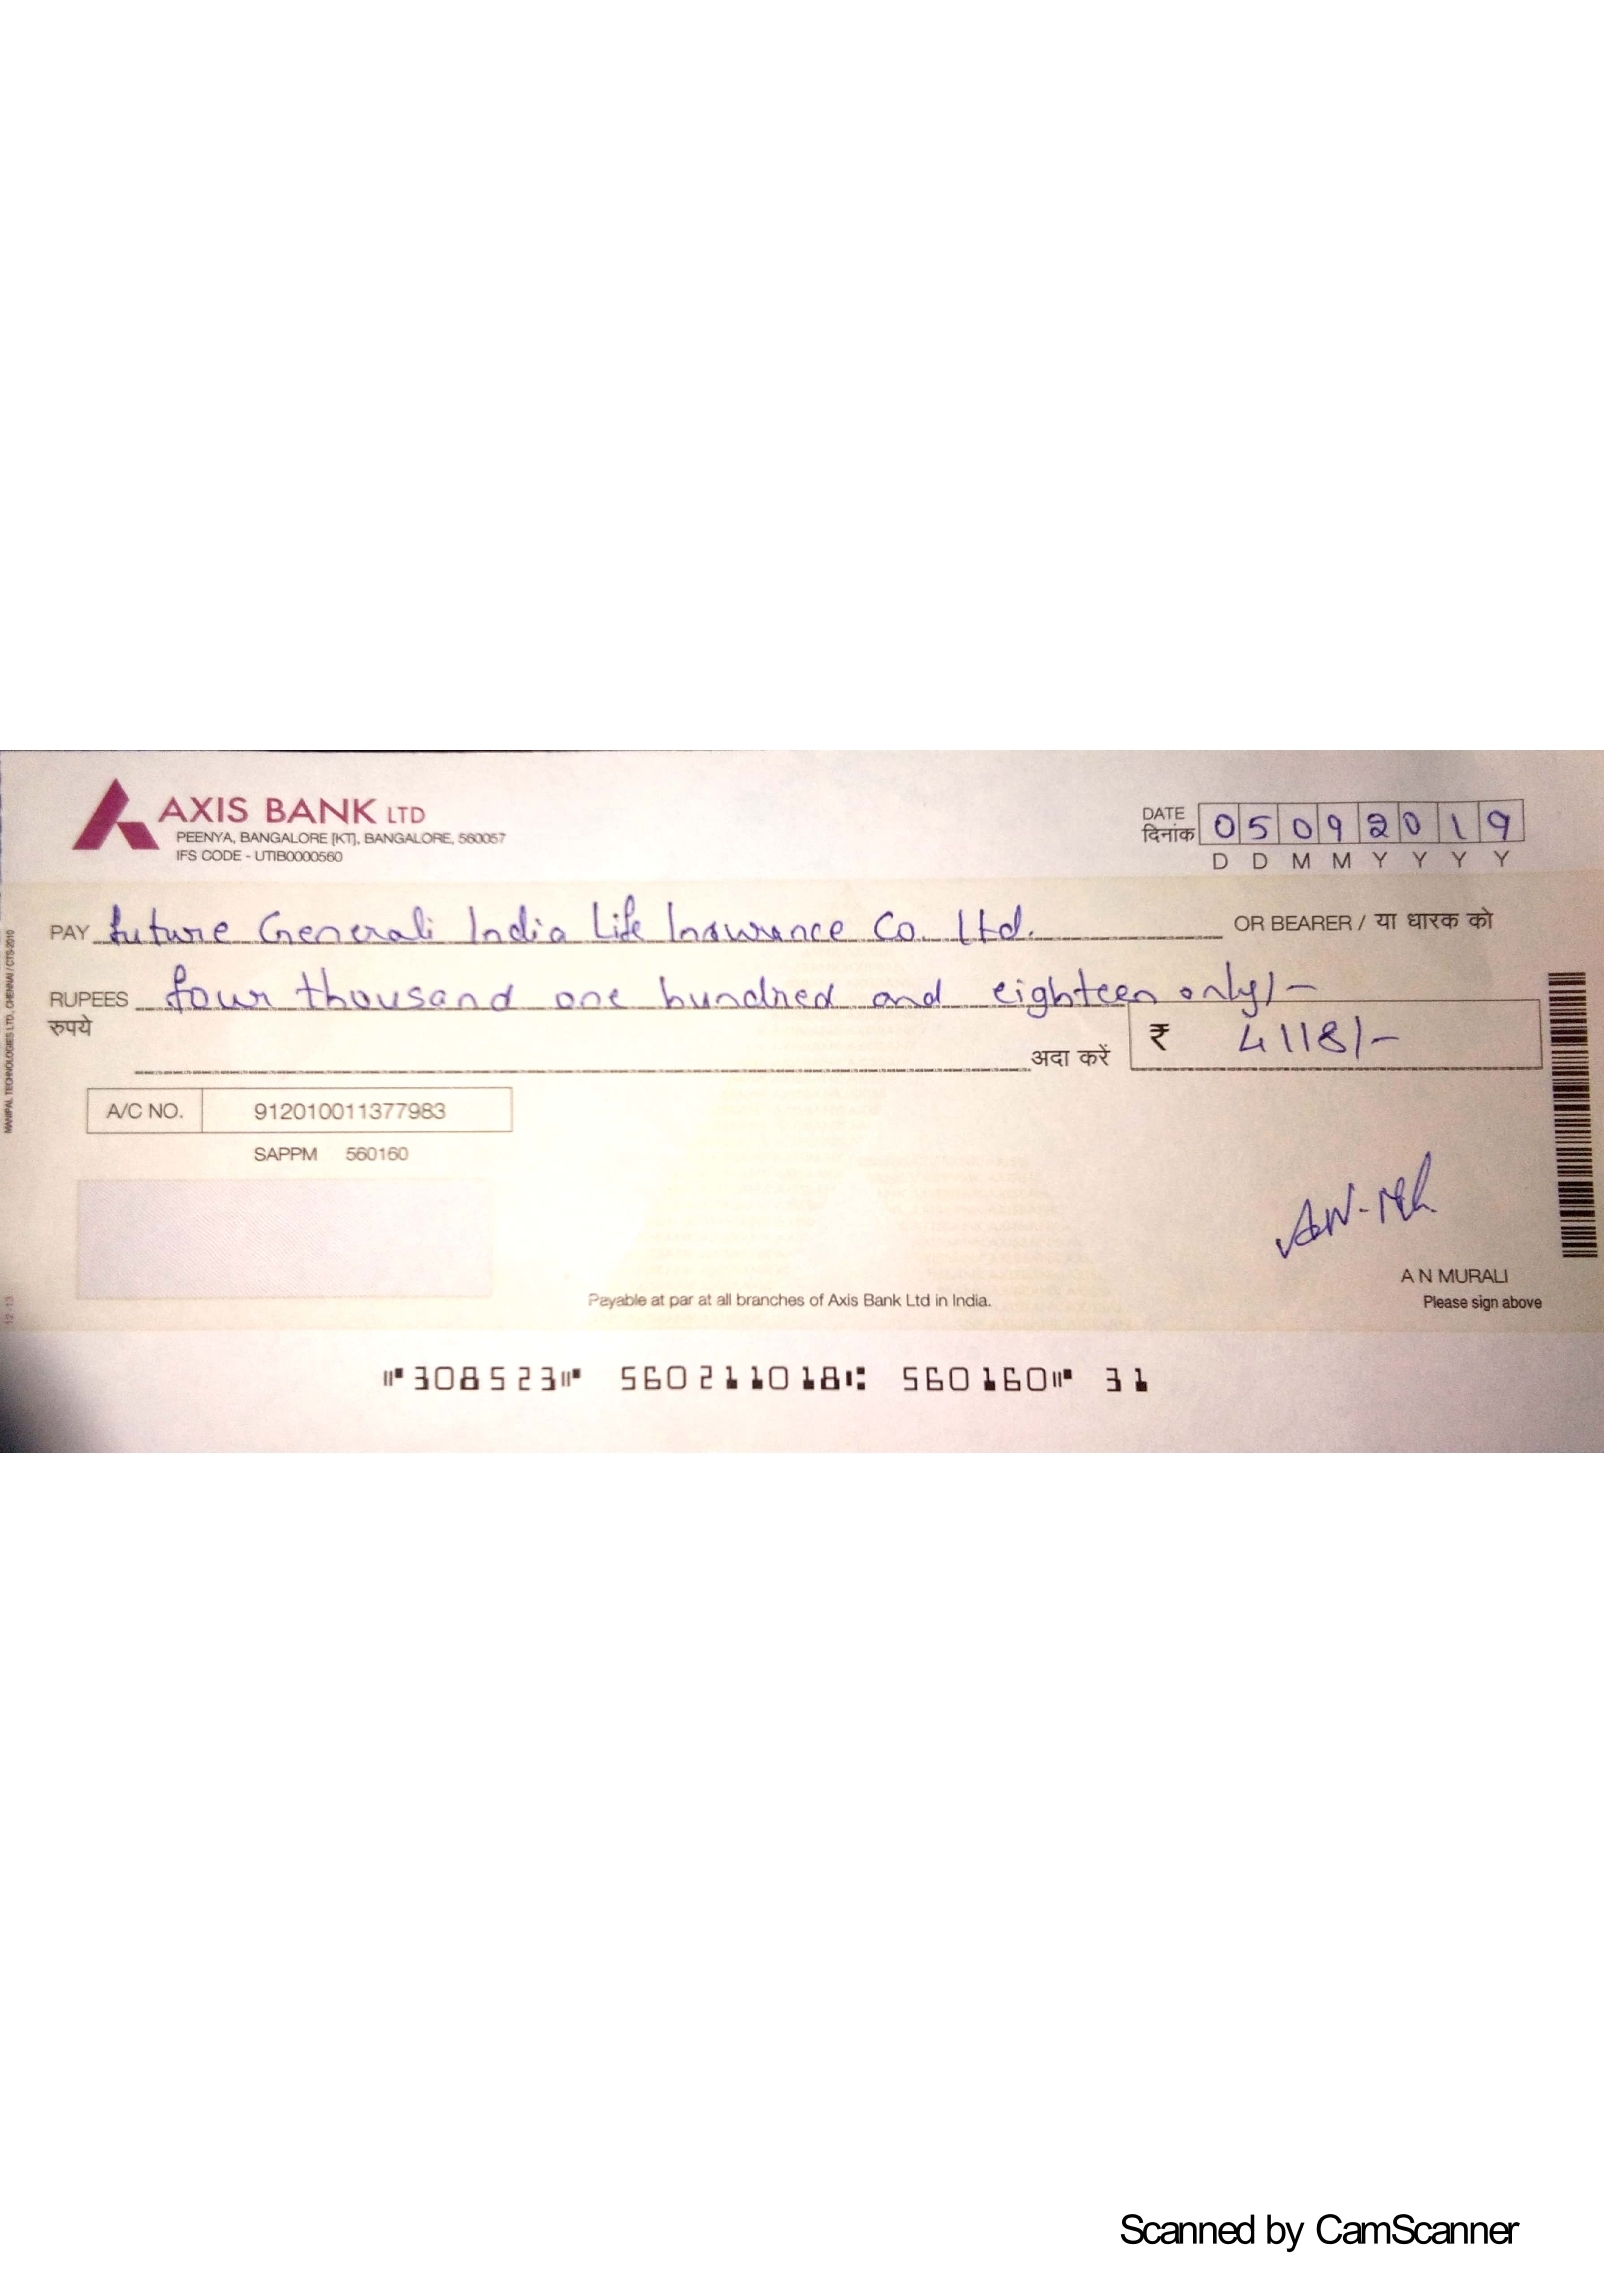 AXIS BANK LTD
PEENYA, BANGALORE [KT], BANGALORE, 560057
IFS CODE - UTIB0000560
DATE
दिनांक
0 5 0 9 2 0 1 9
D D M M Y Y Y Y
PAY Future Generali India Life Insurance Co. Ltd. OR BEARER / या धारक को
RUPEES four thousand one hundred and eighteen only/-
रुपये
अदा करें ₹ 4118/-
A/C NO. 912010011377983
SAPPM 560160
A N MURALI
Please sign above
Payable at par at all branches of Axis Bank Ltd in India.
⑈308523⑈ 560211018⑆ 560160⑈ 31
MANIPAL TECHNOLOGIES LTD., CHENNAI / CTS-2010
12-13
Scanned by CamScanner